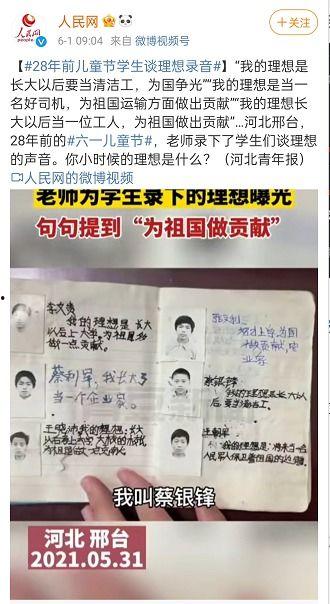 人民网
people
人民网
6-1 09:04 来自 微博视频号
+关注
#28年前儿童节学生谈理想录音# “我的理想是
长大以后要当清洁工，为国争光”“我的理想是当一
名好司机，为祖国运输方面做出贡献”“我的理想长
大以后当一位工人，为祖国做出贡献”…河北邢台，
28年前的#六一儿童节#，老师录下了学生们谈理想
的声音。你小时候的理想是什么？（河北青年报）
人民网的微博视频
老师为学生录下的理想曝光
句句提到“为祖国做贡献”
李文贵
我的理想是长大
以后上大学，为祖国多
做一点贡献。
蔡利军，我长大了
当一个企业家。
蔡银锋
我的理想是长大以后
我叫蔡银锋
河北 邢台
2021.05.31